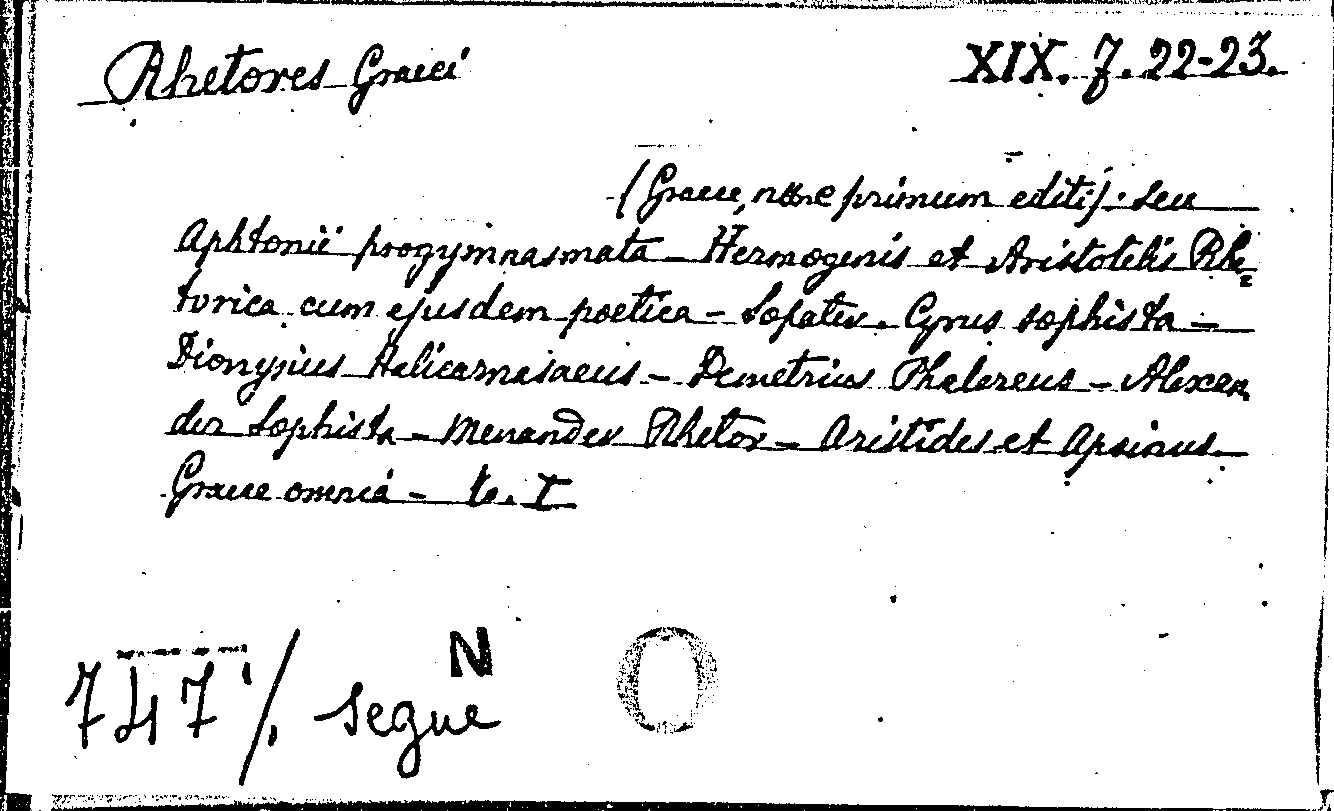 Rhetores Graeci
XIX. 7. 22-23.
(Graece, nunc primum editi): seu
Aphtonii progymnasmata - Hermogenis et Aristotelis Rhe=
torica cum ejusdem poetica - Sopater. Cyrus sophista -
Dionysius Halicarnasaeus - Demetrius Phalereus - Alexan
der Sophista - Menander Rhetor - Aristides et Apsinus.
Graece omnia - to. I
N
O
747 /. segue